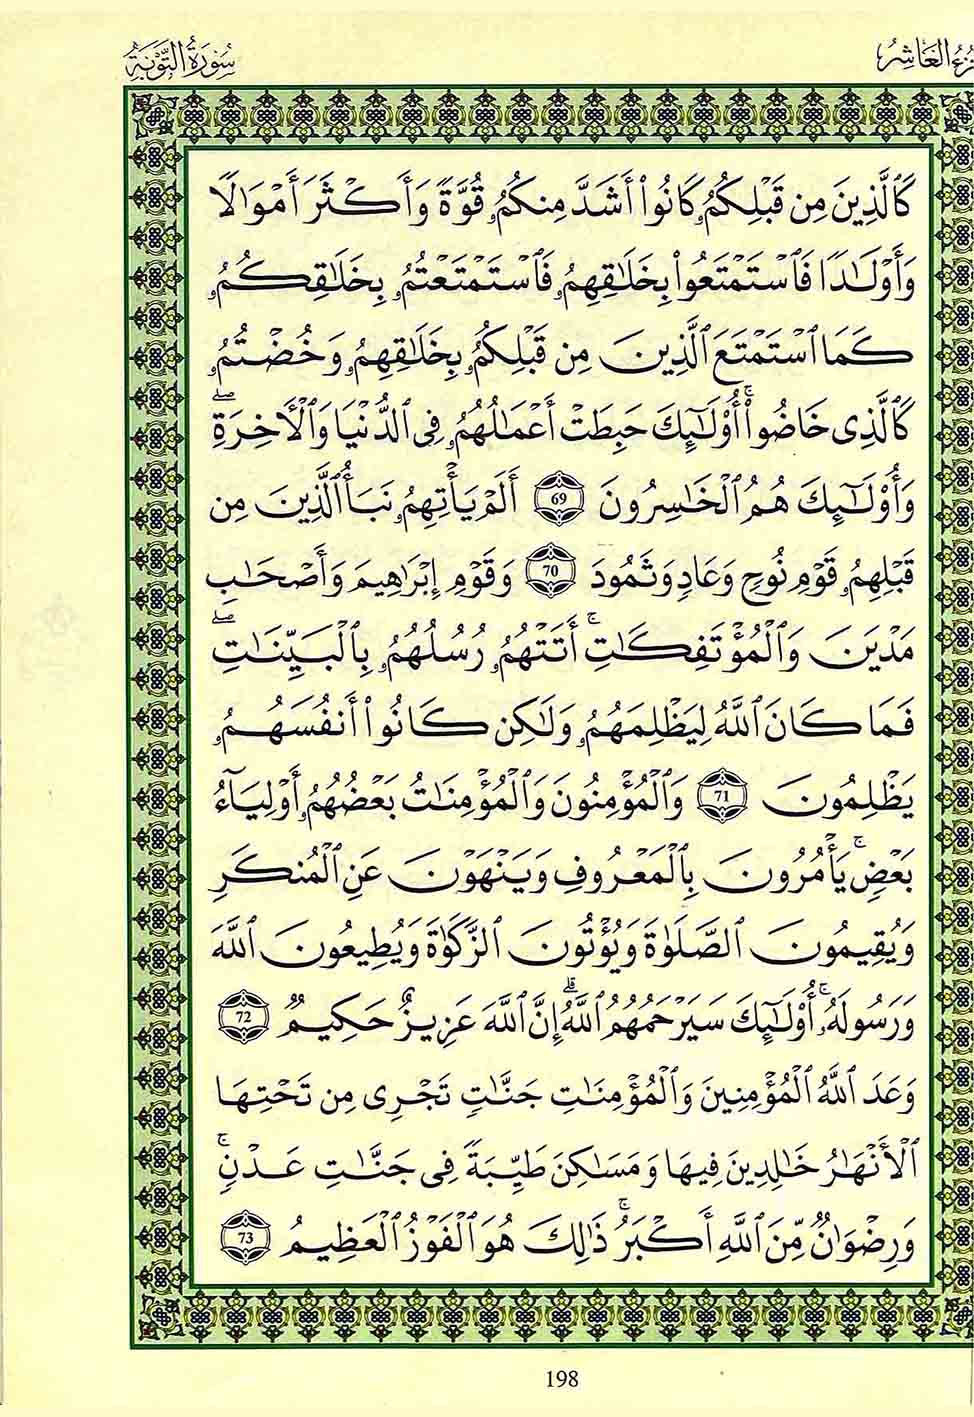 الجزء العاشر سُورَةُ التَّوْبَةِ
كَٱلَّذِينَ مِن قَبْلِكُمُۥ كَانُوٓا۟ أَشَدَّ مِنكُمُۥ قُوَّةً وَأَكْثَرَ أَمْوَٰلًا
وَأَوْلَٰدًا فَٱسْتَمْتَعُوا۟ بِخَلَٰقِهِمُۥ فَٱسْتَمْتَعْتُمُۥ بِخَلَٰقِكُمُۥ
كَمَا ٱسْتَمْتَعَ ٱلَّذِينَ مِن قَبْلِكُمُۥ بِخَلَٰقِهِمُۥ وَخُضْتُمُۥ
كَٱلَّذِى خَاضُوٓا۟ ۚ أُو۟لَٰٓئِكَ حَبِطَتْ أَعْمَٰلُهُمُۥ فِى ٱلدُّنْيَا وَٱلْأَخِرَةِ ۖ
وَأُو۟لَٰٓئِكَ هُمُ ٱلْخَٰسِرُونَ 69 أَلَمْ يَأْتِهِمُۥ نَبَأُ ٱلَّذِينَ مِن
قَبْلِهِمُۥ قَوْمِ نُوحٍ وَعَادٍ وَثَمُودَ 70 وَقَوْمِ إِبْرَٰهِيمَ وَأَصْحَٰبِ
مَدْيَنَ وَٱلْمُؤْتَفِكَٰتِ ۚ أَتَتْهُمُۥ رُسُلُهُمُۥ بِٱلْبَيِّنَٰتِ ۖ
فَمَا كَانَ ٱللَّهُ لِيَظْلِمَهُمُۥ وَلَٰكِن كَانُوٓا۟ أَنفُسَهُمُۥ
يَظْلِمُونَ 71 وَٱلْمُؤْمِنُونَ وَٱلْمُؤْمِنَٰتُ بَعْضُهُمُۥٓ أَوْلِيَآءُ
بَعْضٍ ۚ يَأْمُرُونَ بِٱلْمَعْرُوفِ وَيَنْهَوْنَ عَنِ ٱلْمُنكَرِ
وَيُقِيمُونَ ٱلصَّلَوٰةَ وَيُؤْتُونَ ٱلزَّكَوٰةَ وَيُطِيعُونَ ٱللَّهَ
وَرَسُولَهُۥٓ ۚ أُو۟لَٰٓئِكَ سَيَرْحَمُهُمُ ٱللَّهُ ۗ إِنَّ ٱللَّهَ عَزِيزٌ حَكِيمٌ 72
وَعَدَ ٱللَّهُ ٱلْمُؤْمِنِينَ وَٱلْمُؤْمِنَٰتِ جَنَّٰتٍ تَجْرِى مِن تَحْتِهَا
ٱلْأَنْهَٰرُ خَٰلِدِينَ فِيهَا وَمَسَٰكِنَ طَيِّبَةً فِى جَنَّٰتِ عَدْنٍ ۚ
وَرِضْوَٰنٌ مِّنَ ٱللَّهِ أَكْبَرُ ۚ ذَٰلِكَ هُوَ ٱلْفَوْزُ ٱلْعَظِيمُ 73
198